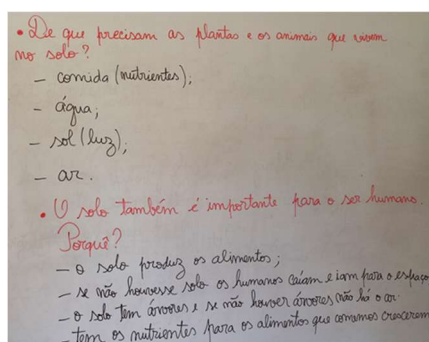 • De que precisam as plantas e os animais que vivem
no solo?
– comida (nutrientes);
– água;
– sol (luz);
– ar.
• O solo também é importante para o ser humano.
Porquê?
– o solo produz os alimentos;
– se não houvesse solo os humanos caíam e iam para o espaço
– o solo tem árvores e se não houver árvores não há o ar
– tem os nutrientes para os alimentos que comemos crescerem